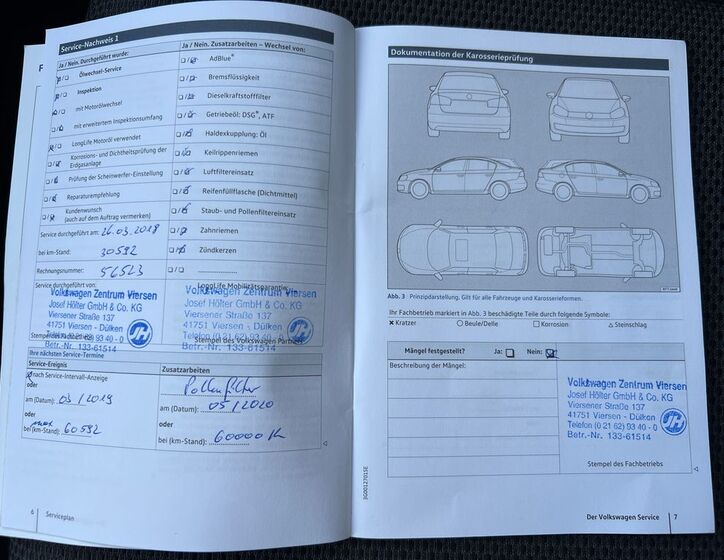 Service-Nachweis 1
Ja / Nein. Durchgeführt wurde:
Ölwechsel-Service
Inspektion
mit Motorölwechsel
mit erweitertem Inspektionsumfang
LongLife Motoröl verwendet
Korrosions- und Dichtheitsprüfung der
Erdgasanlage
Prüfung der Scheinwerfer-Einstellung
Reparaturempfehlung
Kundenwunsch
(auch auf dem Auftrag vermerken)
Service durchgeführt am: 26.03.2018
bei km-Stand: 30592
Rechnungsnummer: 56523
Service durchgeführt von:
Volkswagen Zentrum Viersen
Josef Hölter GmbH & Co. KG
Viersener Straße 137
41751 Viersen - Dülken
Telefon (0 21 62) 93 40 - 0
Betr.-Nr. 133-61514
Ja / Nein. Zusatzarbeiten – Wechsel von:
AdBlue®
Bremsflüssigkeit
Dieselkraftstofffilter
Getriebeöl: DSG®, ATF
Haldexkupplung: Öl
Keilrippenriemen
Luftfiltereinsatz
Reifenfüllflasche (Dichtmittel)
Staub- und Pollenfiltereinsatz
Zahnriemen
Zündkerzen
LongLife Mobilitätsgarantie:
Volkswagen Zentrum Viersen
Josef Hölter GmbH & Co. KG
Viersener Straße 137
41751 Viersen - Dülken
Telefon (0 21 62) 93 40 - 0
Betr.-Nr. 133-61514
Stempel des Volkswagen Partners
Ihre nächsten Service-Termine
Service-Ereignis
nach Service-Intervall-Anzeige
oder
am (Datum): 03/2019
oder
max
bei (km-Stand): 60592
Zusatzarbeiten
Pollenfilter
am (Datum): 05/2020
oder
bei (km-Stand): 60000 K
6 Serviceplan
Dokumentation der Karosserieprüfung
Abb. 3 Prinzipdarstellung. Gilt für alle Fahrzeuge und Karosserieformen.
Ihr Fachbetrieb markiert in Abb. 3 beschädigte Teile durch folgende Symbole:
✕ Kratzer ○ Beule/Delle □ Korrosion △ Steinschlag
Mängel festgestellt? Ja: Nein:
Beschreibung der Mängel:
Volkswagen Zentrum Viersen
Josef Hölter GmbH & Co. KG
Viersener Straße 137
41751 Viersen - Dülken
Telefon (0 21 62) 93 40 - 0
Betr.-Nr. 133-61514
Stempel des Fachbetriebs
3G0012701SE
Der Volkswagen Service 7